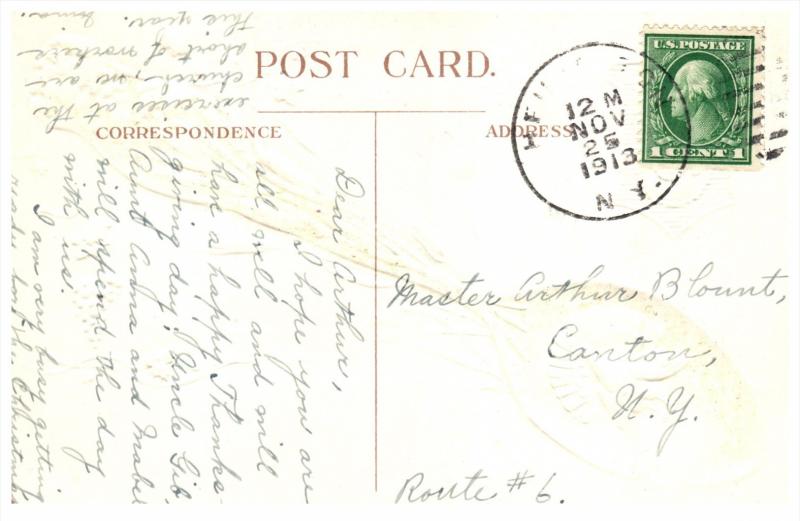 POST CARD.
CORRESPONDENCE
ADDRESS
U.S. POSTAGE
1 CENT 1
12 M
NOV
25
1913
N.Y.
Dear Arthur,
I hope you are
all well and will
have a happy Thanks-
giving day. Uncle Gib
Aunt Anna and Mabel
will spend the day
with us.
I am very busy getting
ready for the Christmas
exercises at the
church, we are
short of workers
this year.
Master Arthur Blount,
Canton,
N.Y.
Route #6.